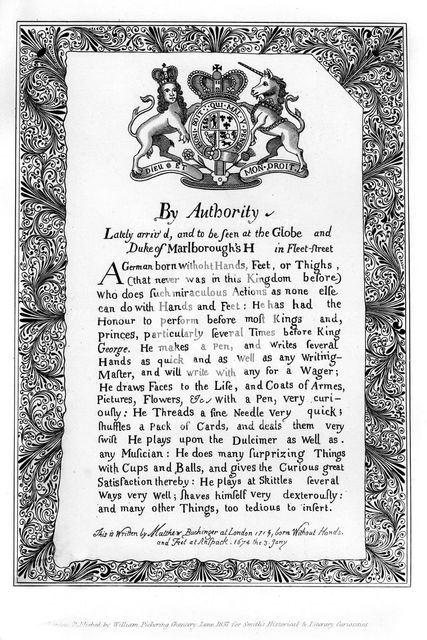 HONI SOIT QUI MAL Y PENSE
DIEU ET MON DROIT
By Authority
Lately arriv'd, and to be seen at the Globe and
Duke of Marlborough's H in Fleet-street
A German born withoht Hands, Feet, or Thighs,
(that never was in this Kingdom before)
Who does such miraculous Actions as none else
can do with Hands and Feet: He has had the
Honour to perform before most Kings and,
princes, particularly several Times before King
George. He makes a Pen, and writes several
Hands as quick and as well as any Writing-
Master, and will write with any for a Wager;
He draws Faces to the Life, and Coats of Armes,
Pictures, Flowers, &c. with a Pen, very curi-
ously: He Threads a fine Needle Very quick;
shuffles a Pack of Cards, and deals them very
swift He plays upon the Dulcimer as Well as.
any Musician: He does many surprizing Things
with Cups and Balls, and gives the Curious great
Satisfaction thereby: He plays at Skittles several
Ways very Well; shaves himself very dexterously:
and many other Things, too tedious to insert.
This is Written by Matthew Buchinger at London 1718, born Without Hands.
and Feet at Anspack. 1674 the 3. Juny
Published by William Pickering Chancery Lane 1837 for Smith's Historical & Literary Curiosities